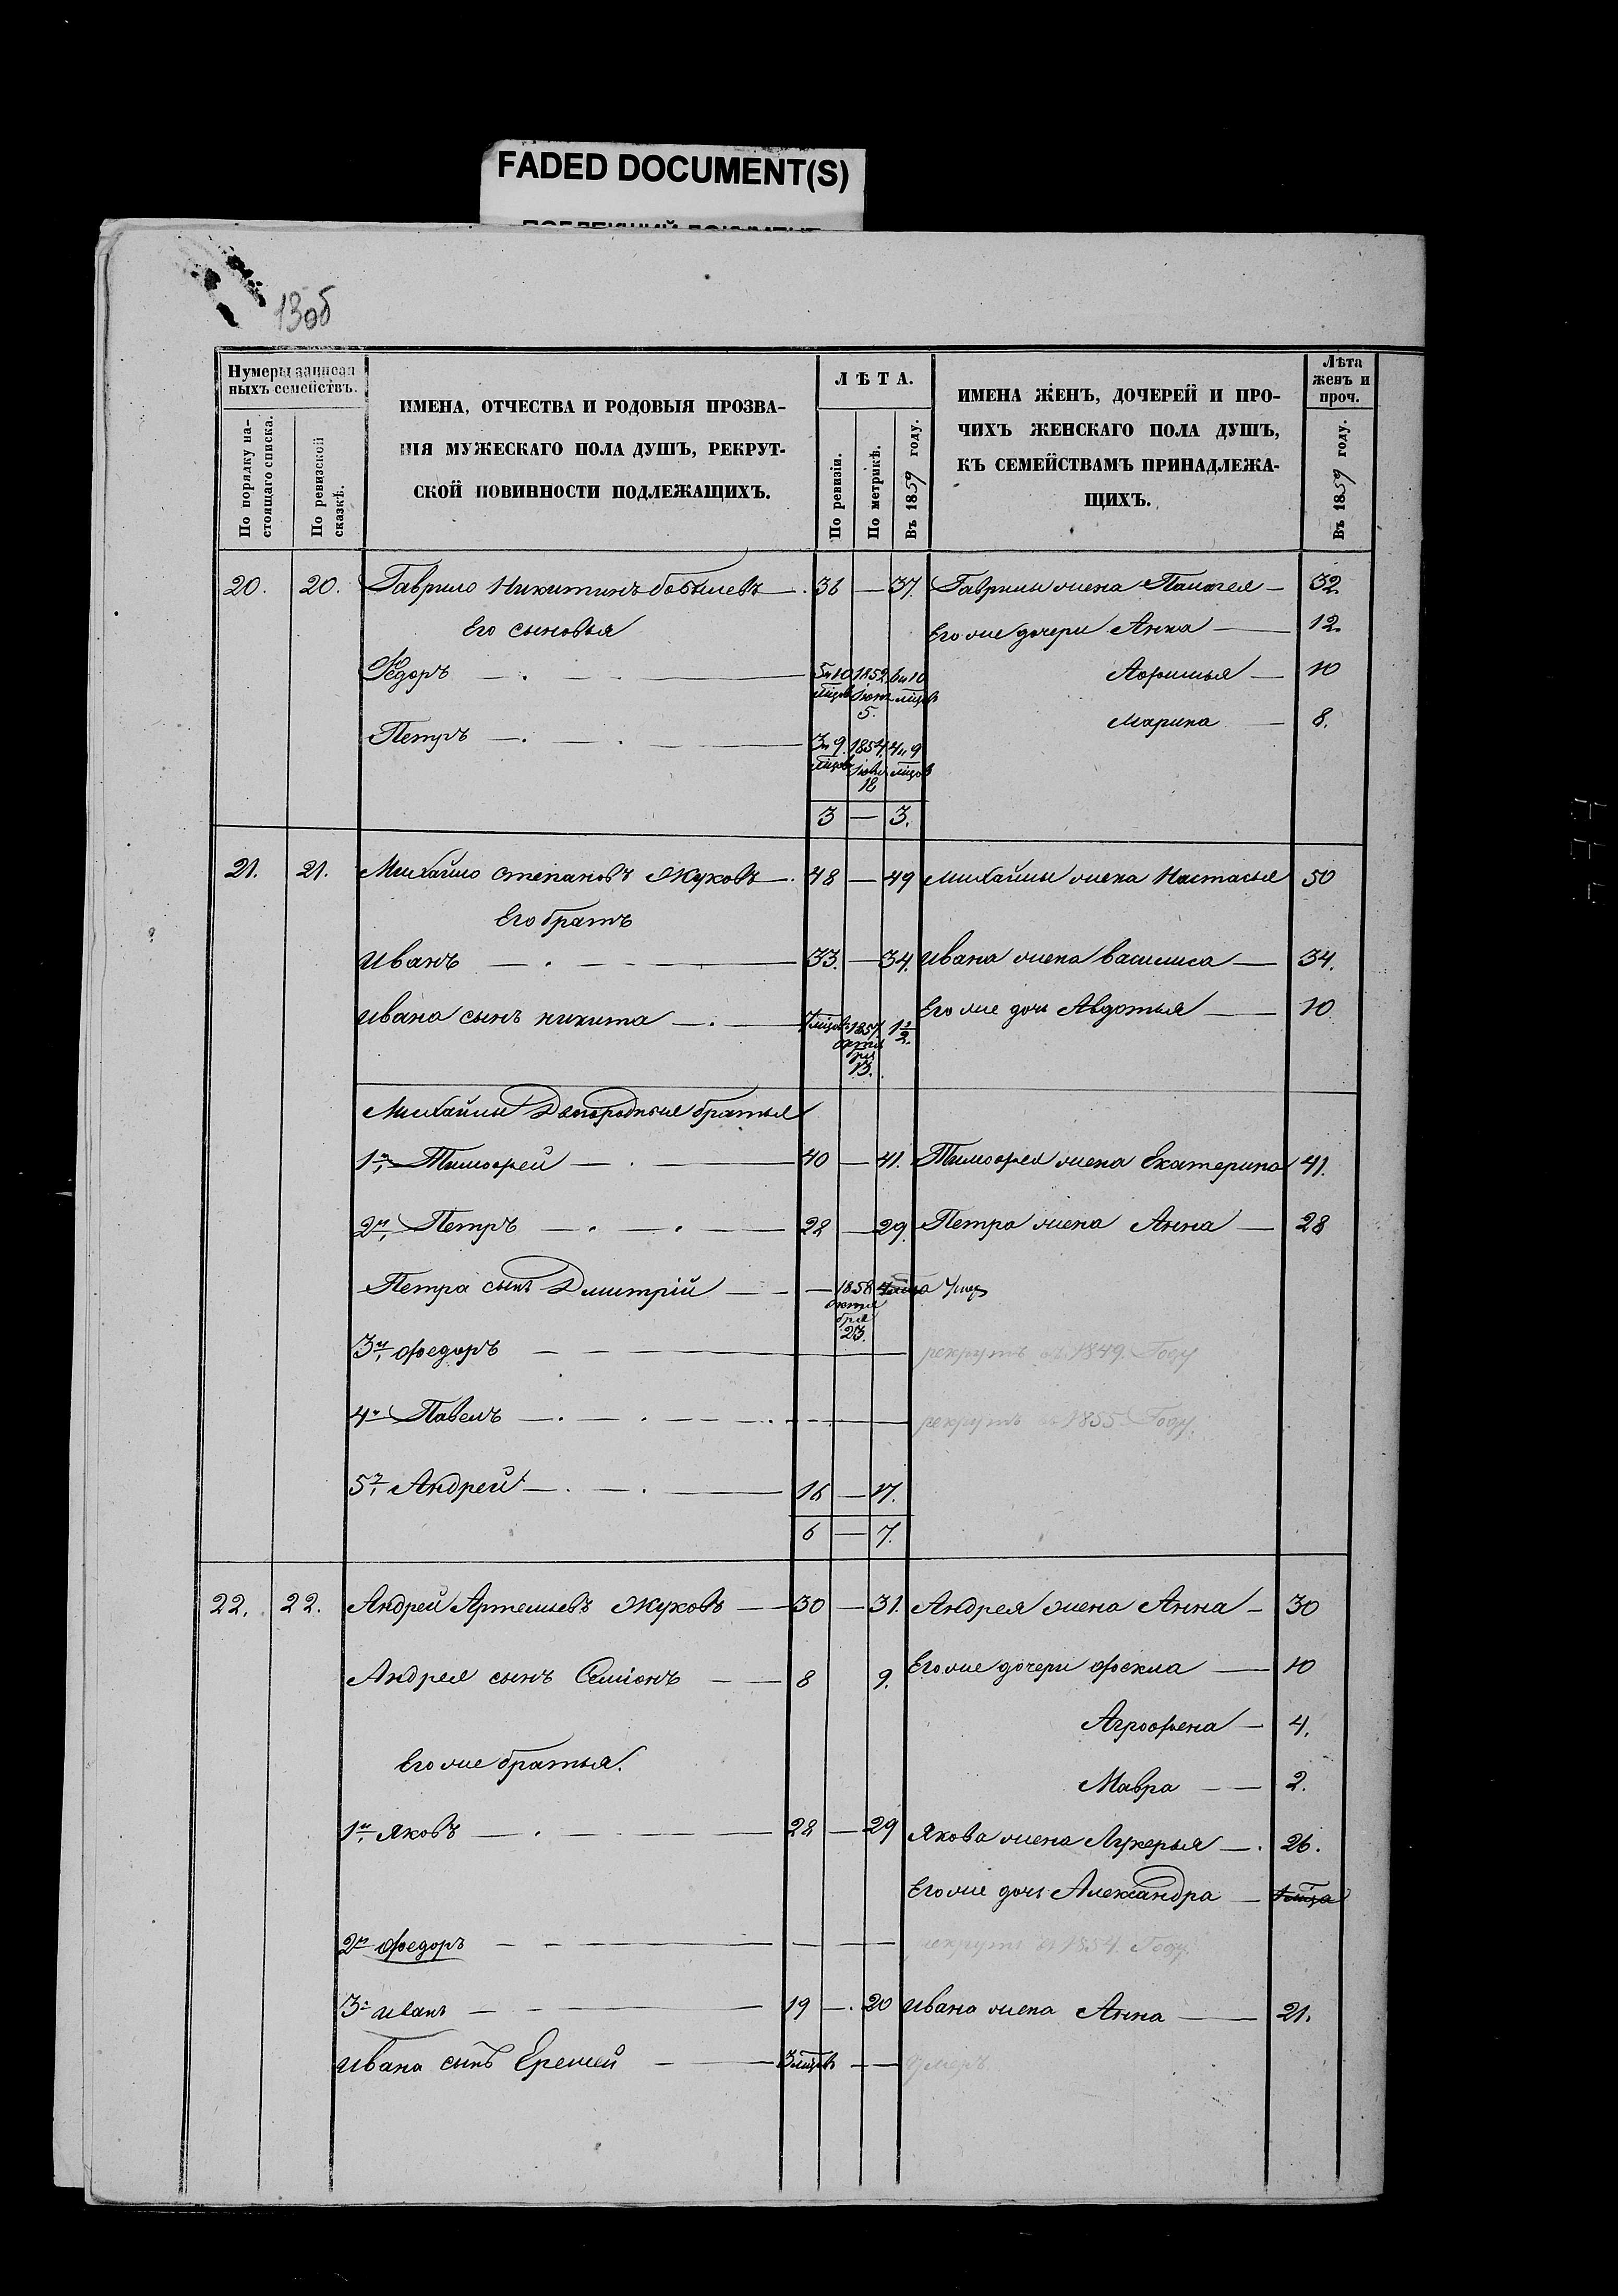 FADED DOCUMENT(S)
13об
Нумеры записан
ныхъ семействъ.
По порядку на-
стоящаго списка.
По ревизской
сказкѣ.
ИМЕНА, ОТЧЕСТВА И РОДОВЫЯ ПРОЗВА-
НІЯ МУЖЕСКАГО ПОЛА ДУШЪ, РЕКРУТ-
СКОЙ ПОВИННОСТИ ПОДЛЕЖАЩИХЪ.
ЛѢТА.
По ревизіи.
По метрикѣ.
Въ 1859 году.
ИМЕНА ЖЕНЪ, ДОЧЕРЕЙ И ПРО-
ЧИХЪ ЖЕНСКАГО ПОЛА ДУШЪ,
КЪ СЕМЕЙСТВАМЪ ПРИНАДЛЕЖА-
ЩИХЪ.
Лѣта
женъ и
проч.
Въ 1859 году.
20. 20. Гаврило Никитинъ Бобылевъ — 36 — 37. Гаврилы жена Палагея — 32.
Его сыновья Его же дочери Анна — 12.
Федоръ — 5 и 10 мцовъ 1852 Іюня 5. 6 и 10 мцовъ Афимья — 10
Марина — 8.
Петръ — 3 и 9 мцовъ 1854 18 4 и 9 мцовъ
3 — 3.
21. 21. Михайло Степановъ Жуковъ — 48 — 49 Михайлы жена Настасья 50
Его братъ
Иванъ — 33. — 34. Ивана жена Василиса — 34.
Ивана сынъ Никита — 7 мцовъ 1857. октября 13. 1 1/2. Его же дочь Авдотья — 10
Михайлы Двоюродные братья
1й, Тимофей — 40 — 41. Тимофея жена Екатерина 41.
2й, Петръ — 28 — 29. Петра жена Анна — 28
Петра сынъ Дмитрій — 1858 октября 23.
3й, Федоръ — рекрутъ въ 1849. Году
4й Павелъ — рекрутъ въ 1855 Году.
5й, Андрей — 16 — 17.
6 — 7.
22. 22. Андрей Артемьевъ Жуковъ — 30 — 31. Андрея жена Анна — 30
Андрея сынъ Семіонъ — 8 9. Его же дочери Фекла — 10
Аграфена — 4.
Его же братья.
Мавра — 2.
1й, Яковъ — 28 — 29 Якова жена Лукерья — 26.
Его же дочь Александра —
2й Федоръ — рекрутъ въ 1854. Году.
3й Иванъ — 19 — 20 Ивана жена Анна — 21.
Ивана сынъ Еремей — 3 мцовъ — умеръ